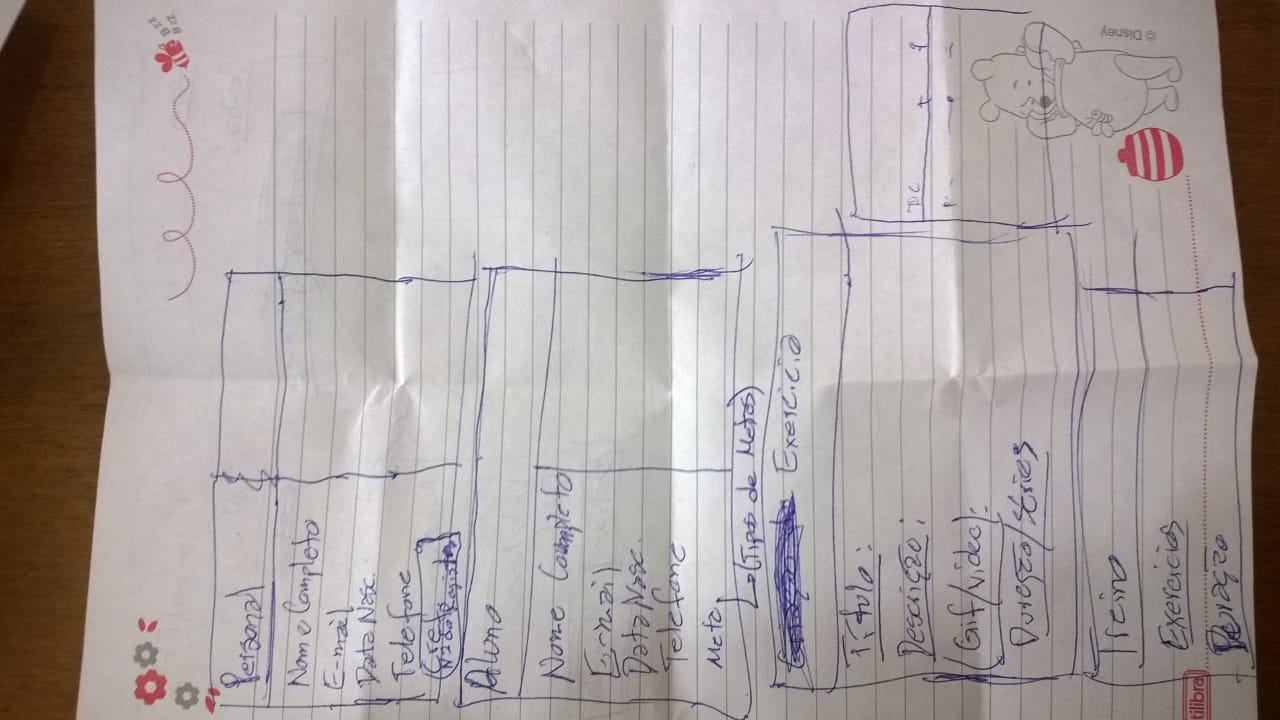 Personal
Nome Completo
E-mail
Data Nasc.
Telefone
Aluno
Nome Completo
E-mail
Data Nasc.
Telefone
Meta
(Tipos de Metas)
Exercicio
Titulo:
Descrição:
(Gif/video):
Duração/Séries
Treino
Exercicios
Duração
© Disney
BZZ
BZZ
tilibra